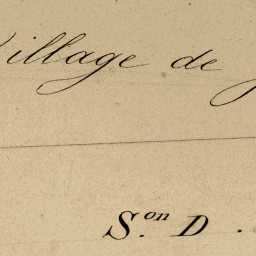 Village de
S.on D.